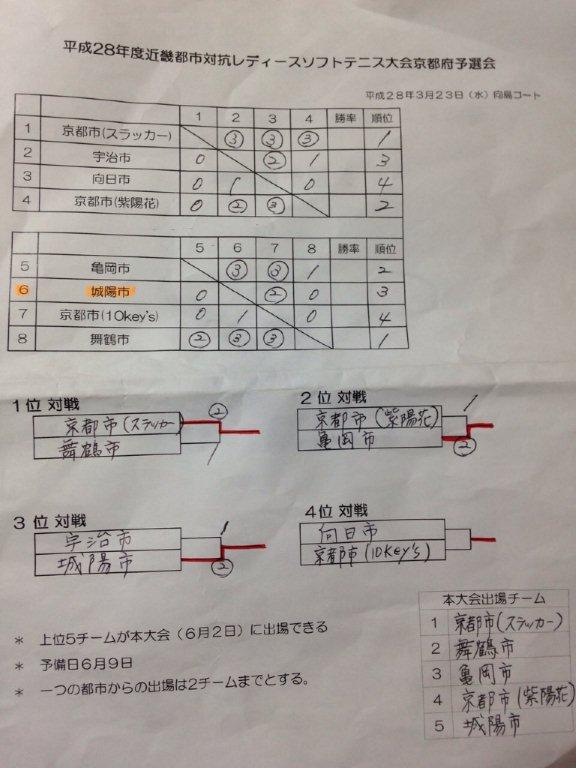 平成28年度近畿都市対抗レディースソフトテニス大会京都府予選会
平成28年3月23日（水）向島コート
1 2 3 4 勝率 順位
1 京都市(スラッカー) ③ ③ ③ 1
2 宇治市 0 ② 1 3
3 向日市 0 1 0 4
4 京都市(紫陽花) 0 ② ③ 2
5 6 7 8 勝率 順位
5 亀岡市 ③ ③ 1 2
6 城陽市 0 ② 0 3
7 京都市(10key's) 0 1 0 4
8 舞鶴市 ② ③ ③ 1
1位 対戦
京都市(スラッカー) ②
舞鶴市 1
2位 対戦
京都市(紫陽花) 1
亀岡市 ②
3位 対戦
宇治市 1
城陽市 ②
4位 対戦
向日市
京都市(10Key's)
＊ 上位5チームが本大会（6月2日）に出場できる
＊ 予備日6月9日
＊ 一つの都市からの出場は2チームまでとする。
本大会出場チーム
1 京都市(スラッカー)
2 舞鶴市
3 亀岡市
4 京都市(紫陽花)
5 城陽市